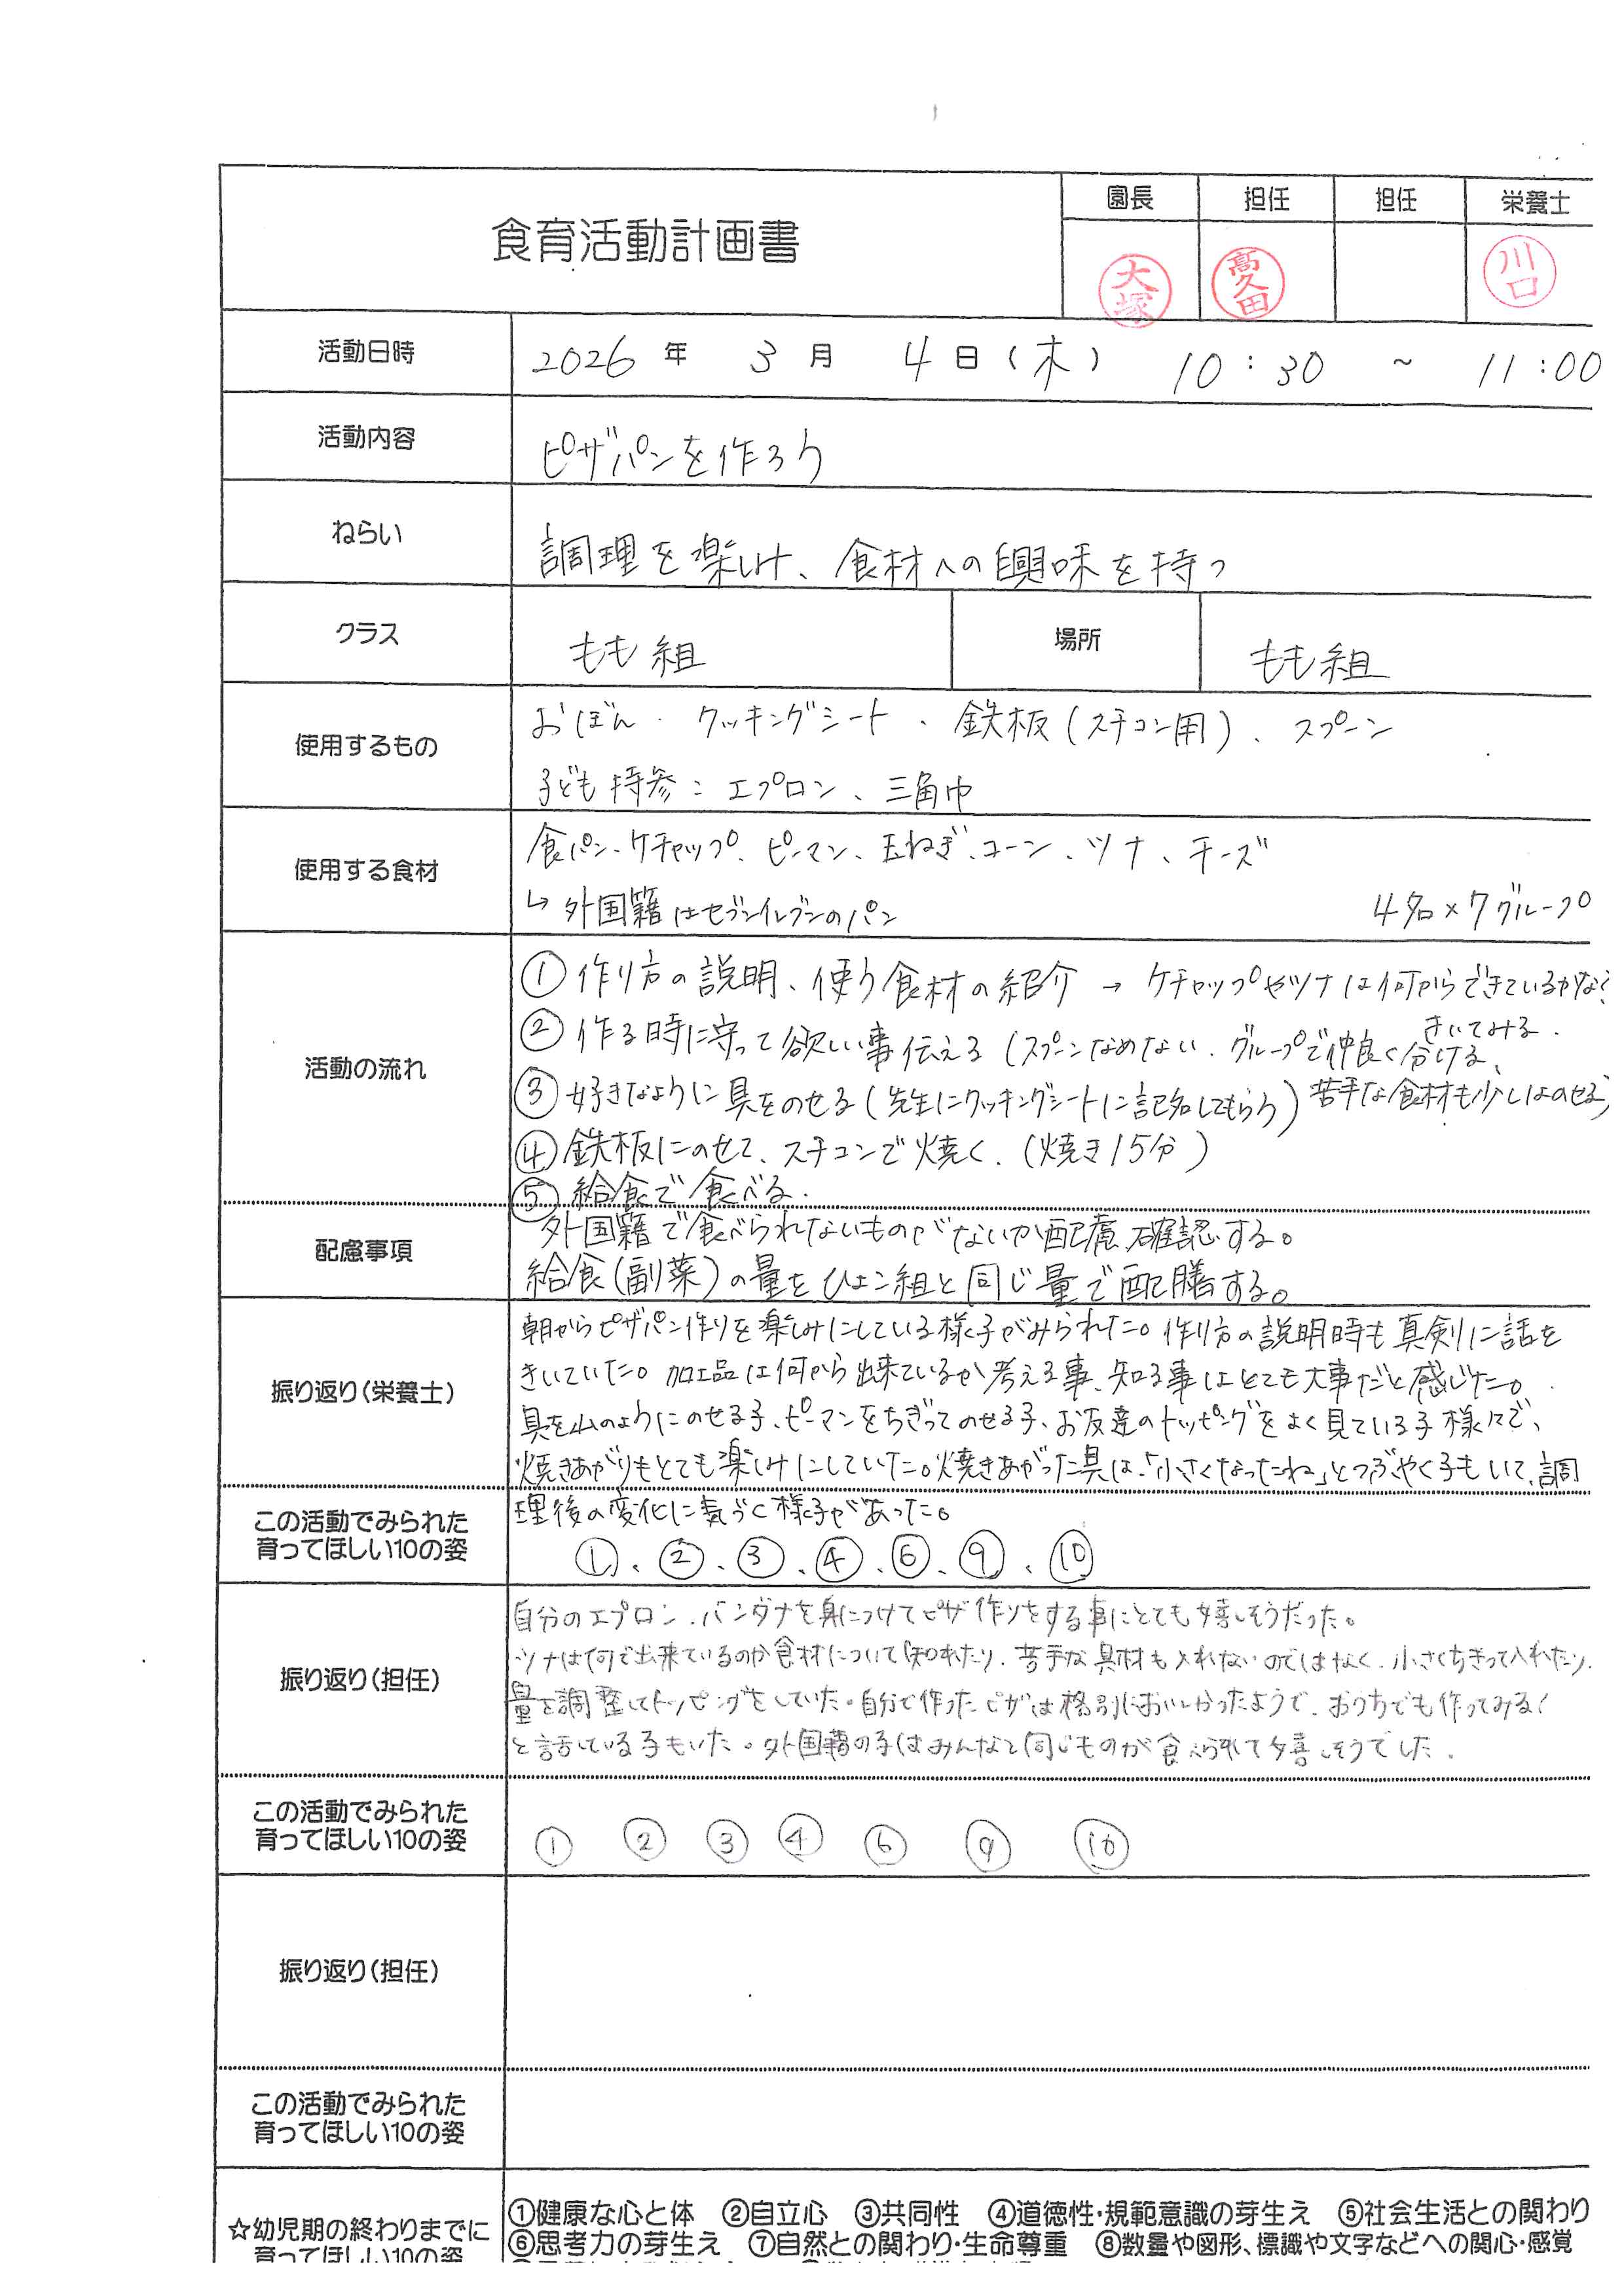 食育活動計画書
園長 担任 担任 栄養士
大塚 高久田 川口
活動日時 2026年 3月 4日(木) 10:30 ~ 11:00
活動内容 ピザパンを作ろう
ねらい 調理を楽しみ、食材への興味を持つ
クラス もも組 場所 もも組
使用するもの おぼん・クッキングシート、鉄板(スチコン用)、スプーン
子ども持参:エプロン、三角巾
使用する食材 食パン、ケチャップ、ピーマン、玉ねぎ、コーン、ツナ、チーズ
↳外国籍はセブンイレブンのパン 4名×7グループ
活動の流れ
①作り方の説明、使う食材の紹介 → ケチャップやツナは何からできているかな?
きいてみる.
②作る時に守って欲しい事伝える(スプーンなめない、グループで仲良く分ける、
③好きなように具をのせる(先生にクッキングシートに記名してもらう) 苦手な食材も少しはのせる)
④鉄板にのせて、スチコンで焼く.(焼き15分)
⑤給食で食べる.
配慮事項 外国籍で食べられないものがないか配慮、確認する。
給食(副菜)の量をひよこ組と同じ量で配膳する。
振り返り(栄養士) 朝からピザパン作りを楽しみにしている様子がみられた。作り方の説明時も真剣に話を
きいていた。加工品は何から出来ているか考える事、知る事はとても大事だと感じた。
具を山のようにのせる子、ピーマンをちぎってのせる子、お友達のトッピングをよく見ている子様々で、
焼きあがりもとても楽しみにしていた。焼きあがった具は、「小さくなったね」とつぶやく子もいて、調
理後の変化に気づく様子があった。
この活動でみられた
育ってほしい10の姿
①、②、③、④、⑥、⑨、⑩
振り返り(担任) 自分のエプロン、バンダナを身につけてピザ作りをする事にとても嬉しそうだった。
ツナは何で出来ているのか食材について知れたり、苦手な具材も入れないのではなく、小さくちぎって入れたり、
量を調整してトッピングをしていた。自分で作ったピザは格別においしかったようで、おうちでも作ってみる!
と話している子もいた。外国籍の子はみんなと同じものが食べられて嬉しそうでした.
この活動でみられた
育ってほしい10の姿
① ② ③ ④ ⑥ ⑨ ⑩
振り返り(担任)
この活動でみられた
育ってほしい10の姿
☆幼児期の終わりまでに
育ってほしい10の姿
①健康な心と体 ②自立心 ③共同性 ④道徳性・規範意識の芽生え ⑤社会生活との関わり
⑥思考力の芽生え ⑦自然との関わり・生命尊重 ⑧数量や図形、標識や文字などへの関心・感覚